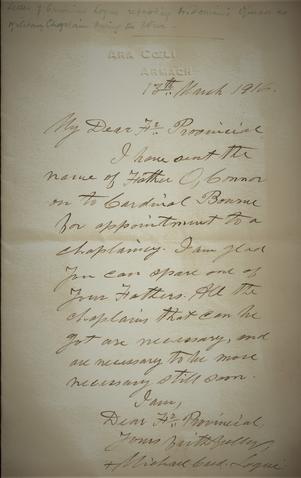 Letter of Cardinal Logue regarding
Military Chaplain during the War.
ARA COELI
ARMAGH
13th March 191
My Dear Fr. Provincial
I have sent the
name of Father O'Connor
on to Cardinal Bourne
for appointment to a
chaplaincy. I am glad
you can spare one of
your Fathers. All the
chaplains that can be
got are necessary, and
are necessary to be more
necessary still soon.
I am,
Dear Fr. Provincial,
Yours faithfully,
+Michael Card. Logue